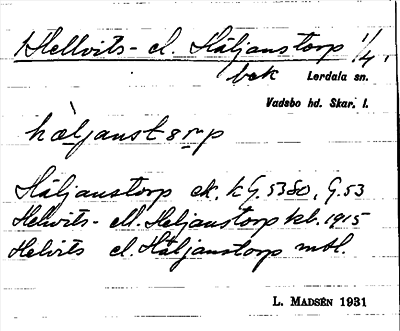 Hellvits- el. Häljanstorp 1/4,
bek Lerdala sn.
Vadsbo hd. Skar. l.
hàljanstərp
Häljanstorp ek. kG. 5380, G. 53
Helvits- ell. Heljanstorp kb. 1915
Helvits el. Häljanstorp mtl.
L. MADSÉN 1931